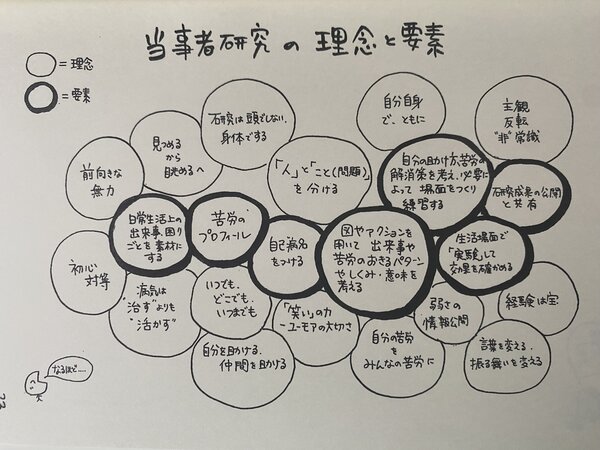 当事者研究の理念と要素
= 理念
= 要素
前向きな
無力
見つめる
から
眺めるへ
研究は頭でしない、
身体でする
「人」と「こと(問題)」
を分ける
自分自身
で、ともに
主観
反転
"非"常識
日常生活上の
出来事、困り
ごとを素材に
する
苦労の
プロフィール
自己病名
をつける
図やアクションを
用いて 出来事や
苦労のおきるパターン
やしくみ・意味を
考える
自分の助け方、苦労の
解消策を考え、必要に
よって 場面をつくり
練習する
研究成果の公開
と共有
生活場面で
"実験"して
効果を確かめる
初心
対等
病気は
"治す"よりも
"活かす"
いつでも、
どこでも、
いつまでも
「笑い」の力
-ユーモアの大切さ
自分を助ける、
仲間を助ける
自分の苦労
を
みんなの苦労に
弱さの
情報公開
経験は宝
言葉を変える、
振る舞いを変える
なるほど…
23